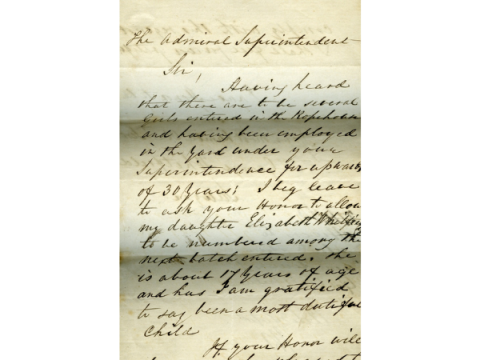 The Admiral Superintendent
Sir,
Having heard
that there are to be several
Girls entered in the Ropehouse
and having been employed
in the Yard under your
Superintendence for upwards
of 30 Years; I beg leave
to ask your Honor to allow
my daughter Elizabeth
to be numbered among the
next batch entered, she
is about 17 Years of age
and has I am gratified
to say been a most dutiful
Child
If your Honor will